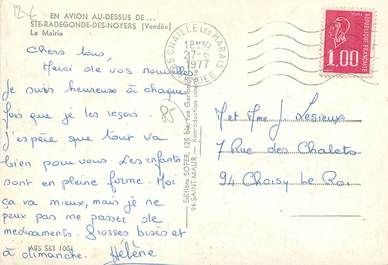 12€
EN AVION AU-DESSUS DE...
STE-RADEGONDE-DES-NOYERS (Vendée)
La Mairie
Chers tous,
Merci de vos nouvelles
Je suis heureux à chaque
fois que je les reçois.
J'espère que tout va
bien pour vous. Les enfants
sont en pleine forme. Moi
ça va mieux, mais je ne
peux pas me passer de
médicaments. Grosses bises et
à dimanche. Hélène
ABS S63 1004
85
Edition SOFER, 125 bis, rue
94-SAINT-MAUR
CHAILLE LES MARAIS
18H30
27-6
1977
VENDEE
REPUBLIQUE FRANÇAISE
POSTES
1,00
Met Mme J Lesieux
7 Rue des Chalets
94 Choisy Le Roi